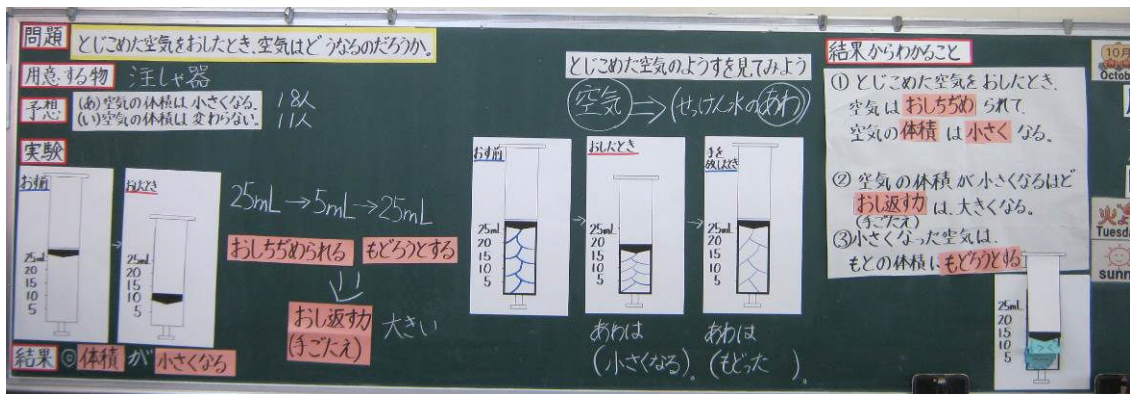 問題
とじこめた空気をおしたとき、空気はどうなるのだろうか。
用意する物 注しゃ器
予想
(あ)空気の体積は小さくなる。 18人
(い)空気の体積は変わらない。 11人
実験
おす前
25mL
20
15
10
5
おしたとき
25mL
20
15
10
5
25mL→5mL→25mL
おしちぢめられる もどろうとする
おし返す力
(手ごたえ)
大きい
結果 ◎体積が小さくなる
とじこめた空気のようすを見てみよう
空気⇒(せっけん水のあわ)
おす前
25mL
20
15
10
5
おしたとき
25mL
20
15
10
5
あわは
(小さくなる)。
手を
放したとき
25mL
20
15
10
5
あわは
(もどった )。
結果からわかること
① とじこめた空気をおしたとき、
空気はおしちぢめられて、
空気の体積は小さくなる。
② 空気の体積が小さくなるほど
おし返す力は、大きくなる。
(手ごたえ)
③小さくなった空気は、
もとの体積にもどろうとする
25mL
20
15
10
5
10月
Octob
火
Tuesda
sunn